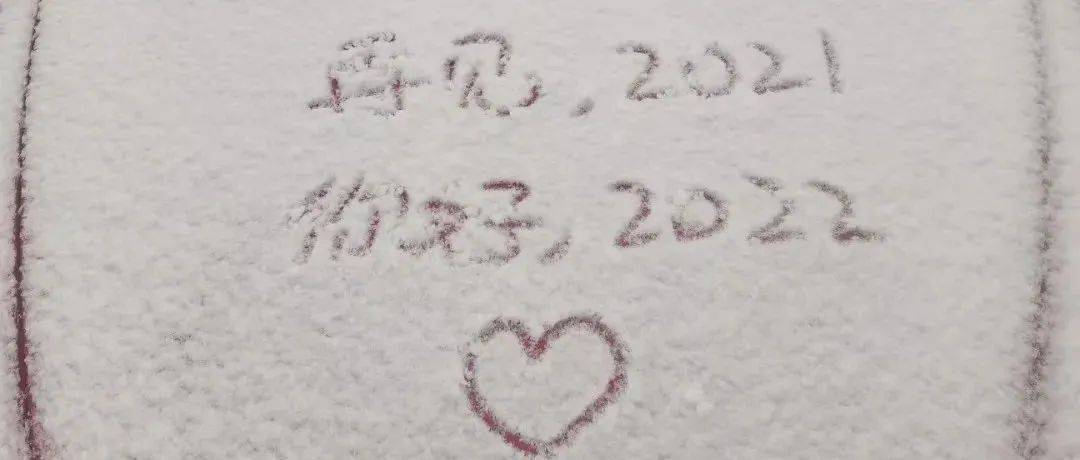 再见,2021
你好,2022